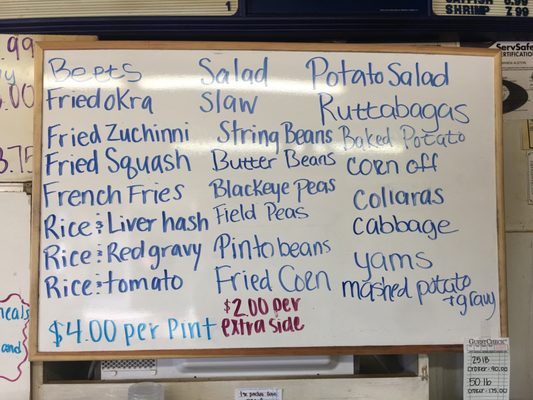 1
CATFISH 6.99
SHRIMP 7.99
.99
.00
3.75
ServSafe
CERTIFICATION
Beets
Fried Okra
Fried Zuchinni
Fried Squash
French Fries
Rice & Liver hash
Rice & Red gravy
Rice & tomato
$4.00 per Pint
Salad
Slaw
String Beans
Butter Beans
Blackeye Peas
Field Peas
Pinto beans
Fried Corn
$2.00 per
extra side
Potato Salad
Ruttabagas
Baked Potato
corn off
collards
cabbage
yams
mashed potato
+ gravy
meals
and
GUEST CHECK
25 lb
50 lb